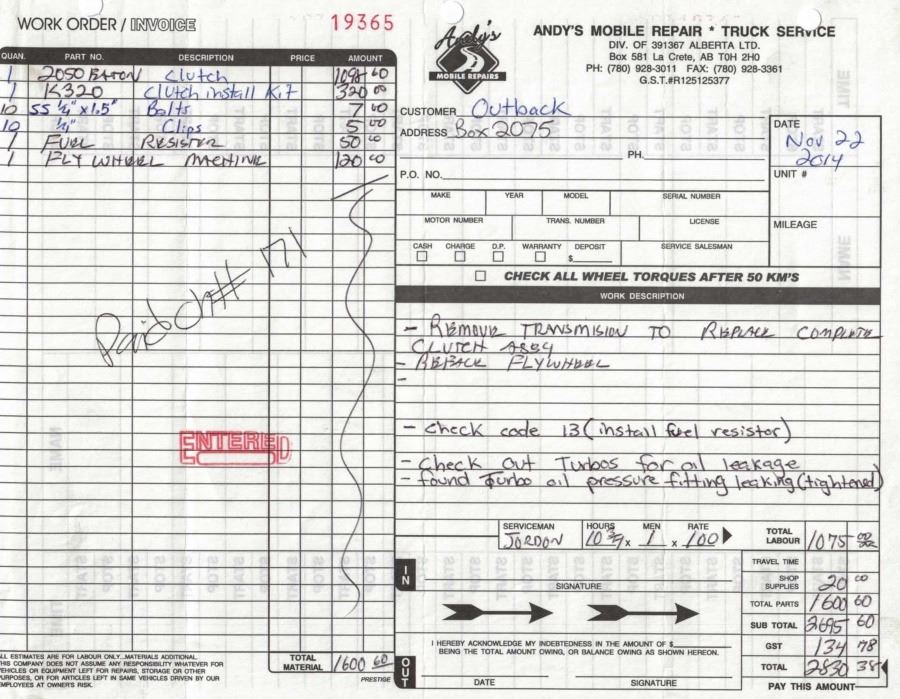 WORK ORDER / INVOICE
19365
QUAN. PART NO. DESCRIPTION PRICE AMOUNT
1 2050 EATON Clutch 1098 60
1 K320 Clutch install Kit 320 00
10 SS 1/4" x 1.5" Bolts 7 00
10 1/4" Clips 5 00
1 FUEL RESISTER 50 00
1 FLY WHEEL MACHINE 120 00
Paid ch# 171
ENTERED
ALL ESTIMATES ARE FOR LABOUR ONLY...MATERIALS ADDITIONAL.
THIS COMPANY DOES NOT ASSUME ANY RESPONSIBILITY WHATEVER FOR
VEHICLES OR EQUIPMENT LEFT FOR REPAIRS, STORAGE OR OTHER
PURPOSES, OR FOR ARTICLES LEFT IN SAME VEHICLES DRIVEN BY OUR
EMPLOYEES AT OWNER'S RISK.
TOTAL MATERIAL 1600 60
PRESTIGE
Andy's
MOBILE REPAIRS
ANDY'S MOBILE REPAIR * TRUCK SERVICE
DIV. OF 391367 ALBERTA LTD.
Box 581 La Crete, AB T0H 2H0
PH: (780) 928-3011 FAX: (780) 928-3361
G.S.T.#R125125377
CUSTOMER Outback
ADDRESS Box 2075
PH.
P.O. NO.
DATE
Nov 22
2014
UNIT #
MILEAGE
MAKE YEAR MODEL SERIAL NUMBER
MOTOR NUMBER TRANS. NUMBER LICENSE
CASH CHARGE D.P. WARRANTY DEPOSIT SERVICE SALESMAN
$
CHECK ALL WHEEL TORQUES AFTER 50 KM'S
WORK DESCRIPTION
- REMOVE TRANSMISION TO REPLACE COMPLETE
CLUTCH ASSY
- REFACE FLYWHEEL
-
- Check code 13 (install fuel resistor)
- Check Out Turbos for oil leakage
- found Turbo oil pressure fitting leaking (tightened)
SERVICEMAN HOURS MEN RATE
JORDON 10 3/4 x 1 x 100
TOTAL LABOUR 1075 00
TRAVEL TIME
SHOP SUPPLIES 20 00
TOTAL PARTS 1600 60
SUB TOTAL 2695 60
GST 134 78
TOTAL 2830 38
PAY THIS AMOUNT
IN
SIGNATURE
OUT
I HEREBY ACKNOWLEDGE MY INDEBTEDNESS IN THE AMOUNT OF $
BEING THE TOTAL AMOUNT OWING, OR BALANCE OWING AS SHOWN HEREON.
DATE SIGNATURE